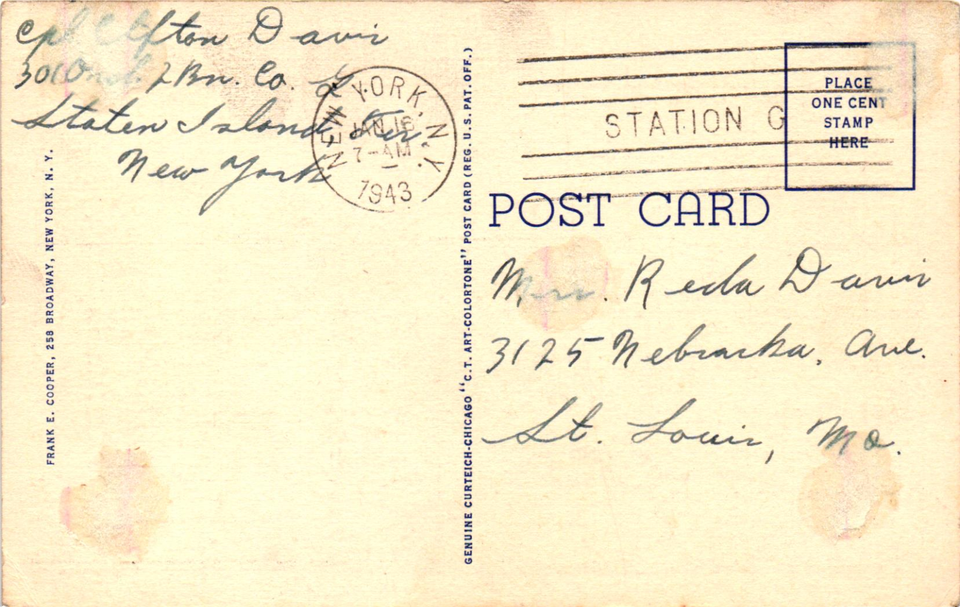 Cpl Clifton Davis
301 Ord. 2 Bn. Co. G
Staten Island Ter.
New York
NEW YORK, N.Y.
JAN 16
7-AM
1943
STATION G
PLACE
ONE CENT
STAMP
HERE
POST CARD
Mrs. Reda Davis
3125 Nebraska, Ave.
St. Louis, Mo.
FRANK E. COOPER, 258 BROADWAY, NEW YORK, N. Y.
GENUINE CURTEICH-CHICAGO "C.T. ART-COLORTONE" POST CARD (REG. U.S. PAT. OFF.)